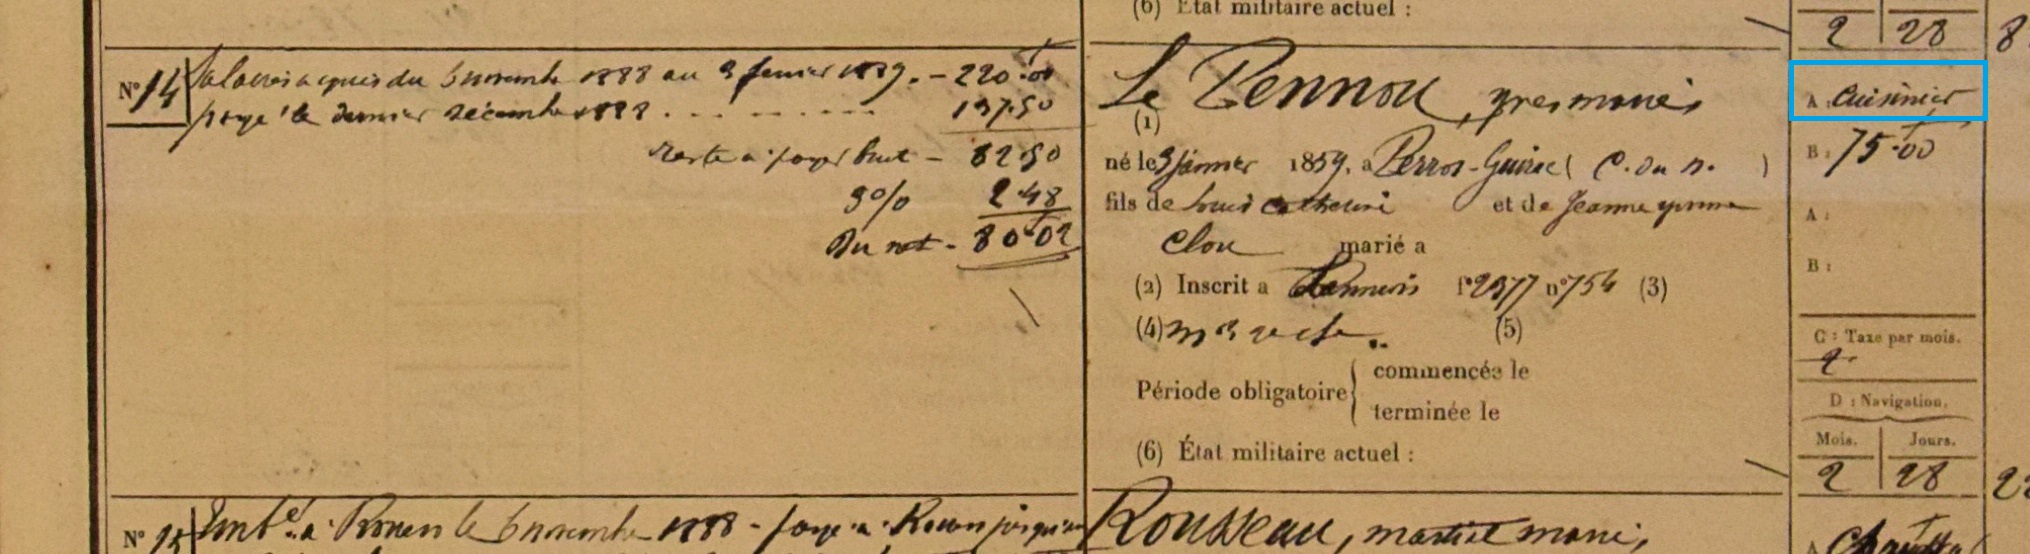 (6) État militaire actuel :
2 28 8
N° 14 Salaires acquis du 6 novembre 1888 au 3 fevrier 1889. - 220.00
payé le dernier décembre 1888 . . . . . . . 137.50
reste a payer brut - 82.50
3% 2.48
Du net - 80.02
Le Pennou, yves marie,
(1)
né le 3 janvier 1859, a Perros-Guirec ( C. du N. )
fils de Louis Catherine et de Jeanne yvonne
Clou marié a
(2) Inscrit a Lannion f° 2377 n° 754 (3)
(4) (5)
Période obligatoire { commencée le
terminée le
(6) État militaire actuel :
A : Cuisinier
B : 75.00
A :
B :
C : Taxe par mois.
2
D : Navigation.
Mois. Jours.
2 28 22
N° 15 Embé a Rouen le 6 novembre 1888 - payé a Rouen jusqu'au
Rousseau, martial marie,
A